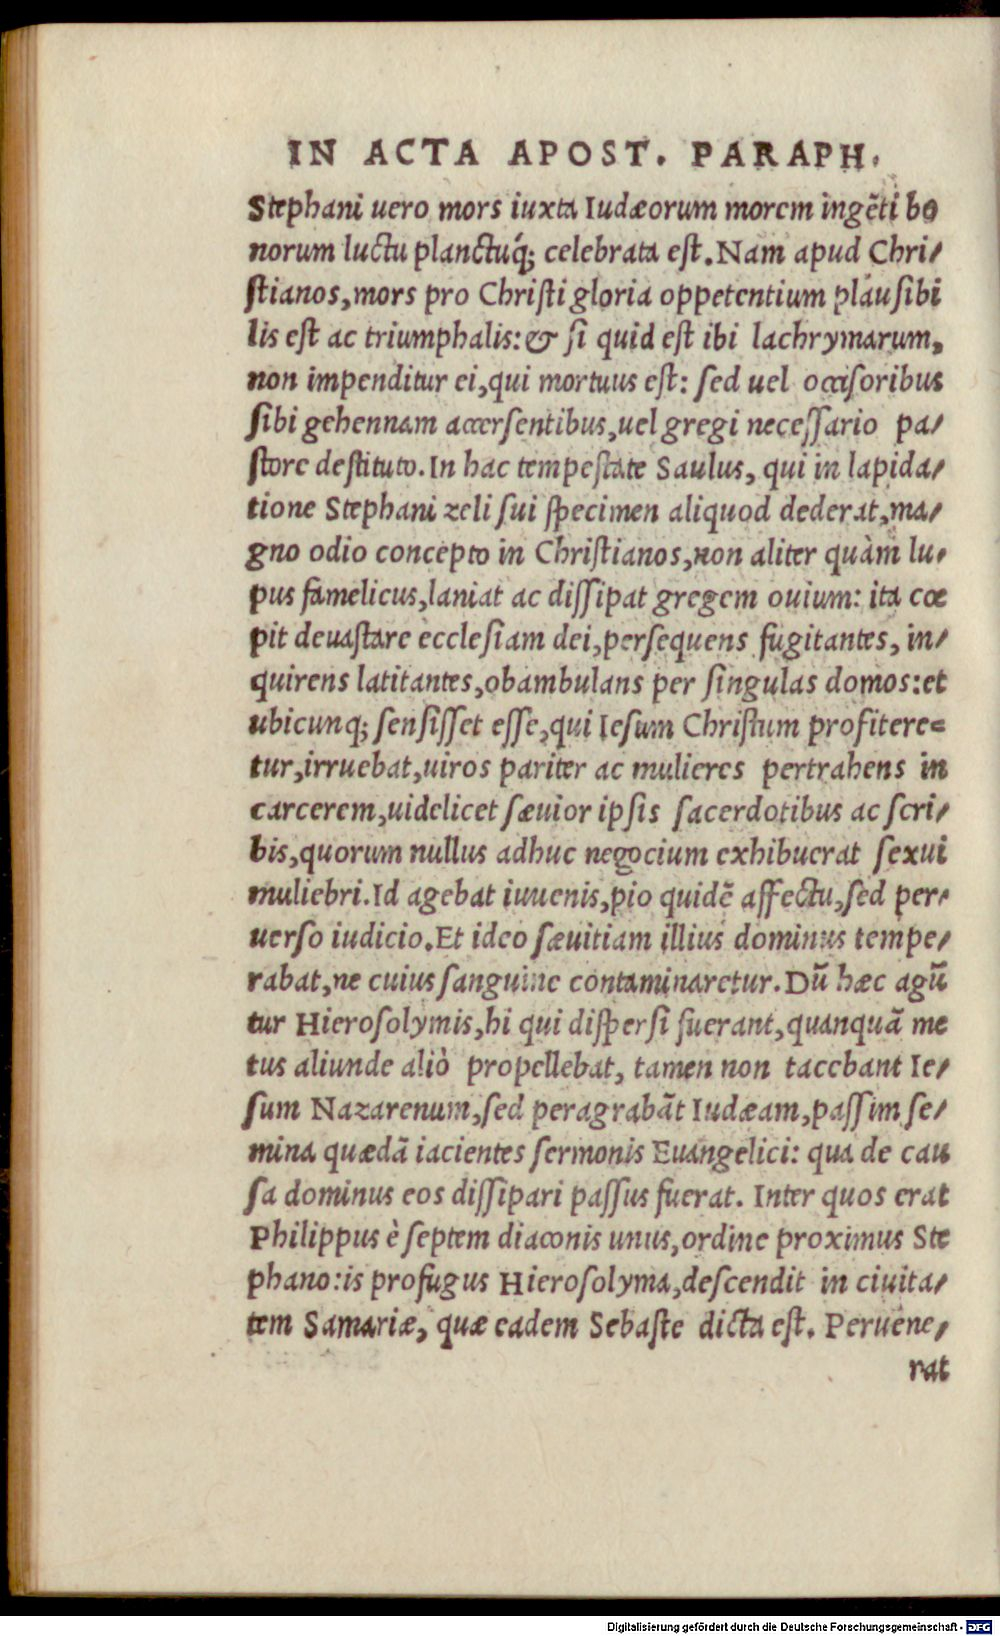 IN ACTA APOST. PARAPH.
Stephani uero mors iuxta Iudæorum morem ingẽti bo
norum luctu planctuq́; celebrata est. Nam apud Chri/
stianos, mors pro Christi gloria oppetentium plausibi
lis est ac triumphalis: & si quid est ibi lachrymarum,
non impenditur ei, qui mortuus est: sed uel occisoribus
sibi gehennam accersentibus, uel gregi necessario pa/
store destituto. In hac tempestate Saulus, qui in lapida/
tione Stephani zeli sui specimen aliquod dederat, ma/
gno odio concepto in Christianos, non aliter quàm lu/
pus famelicus, laniat ac dissipat gregem ouium: ita cœ
pit deuastare ecclesiam dei, persequens fugitantes, in/
quirens latitantes, obambulans per singulas domos: et
ubicunq; sensisset esse, qui Iesum Christum profitere=
tur, irruebat, uiros pariter ac mulieres pertrahens in
carcerem, uidelicet sæuior ipsis sacerdotibus ac scri/
bis, quorum nullus adhuc negocium exhibuerat sexui
muliebri. Id agebat iuuenis, pio quidẽ affectu, sed per/
uerso iudicio. Et ideo sæuitiam illius dominus tempe/
rabat, ne cuius sanguine contaminaretur. Dũ hæc agũ
tur Hierosolymis, hi qui dispersi fuerant, quanquã me
tus aliunde aliò propellebat, tamen non tacebant Ie/
sum Nazarenum, sed peragrabãt Iudæam, passim se/
mina quædã iacientes sermonis Euangelici: qua de cau
sa dominus eos dissipari passus fuerat. Inter quos erat
Philippus è septem diaconis unus, ordine proximus Ste
phano: is profugus Hierosolyma, descendit in ciuita/
tem Samariæ, quæ eadem Sebaste dicta est. Peruene/
rat
Digitalisierung gefördert durch die Deutsche Forschungsgemeinschaft - DFG